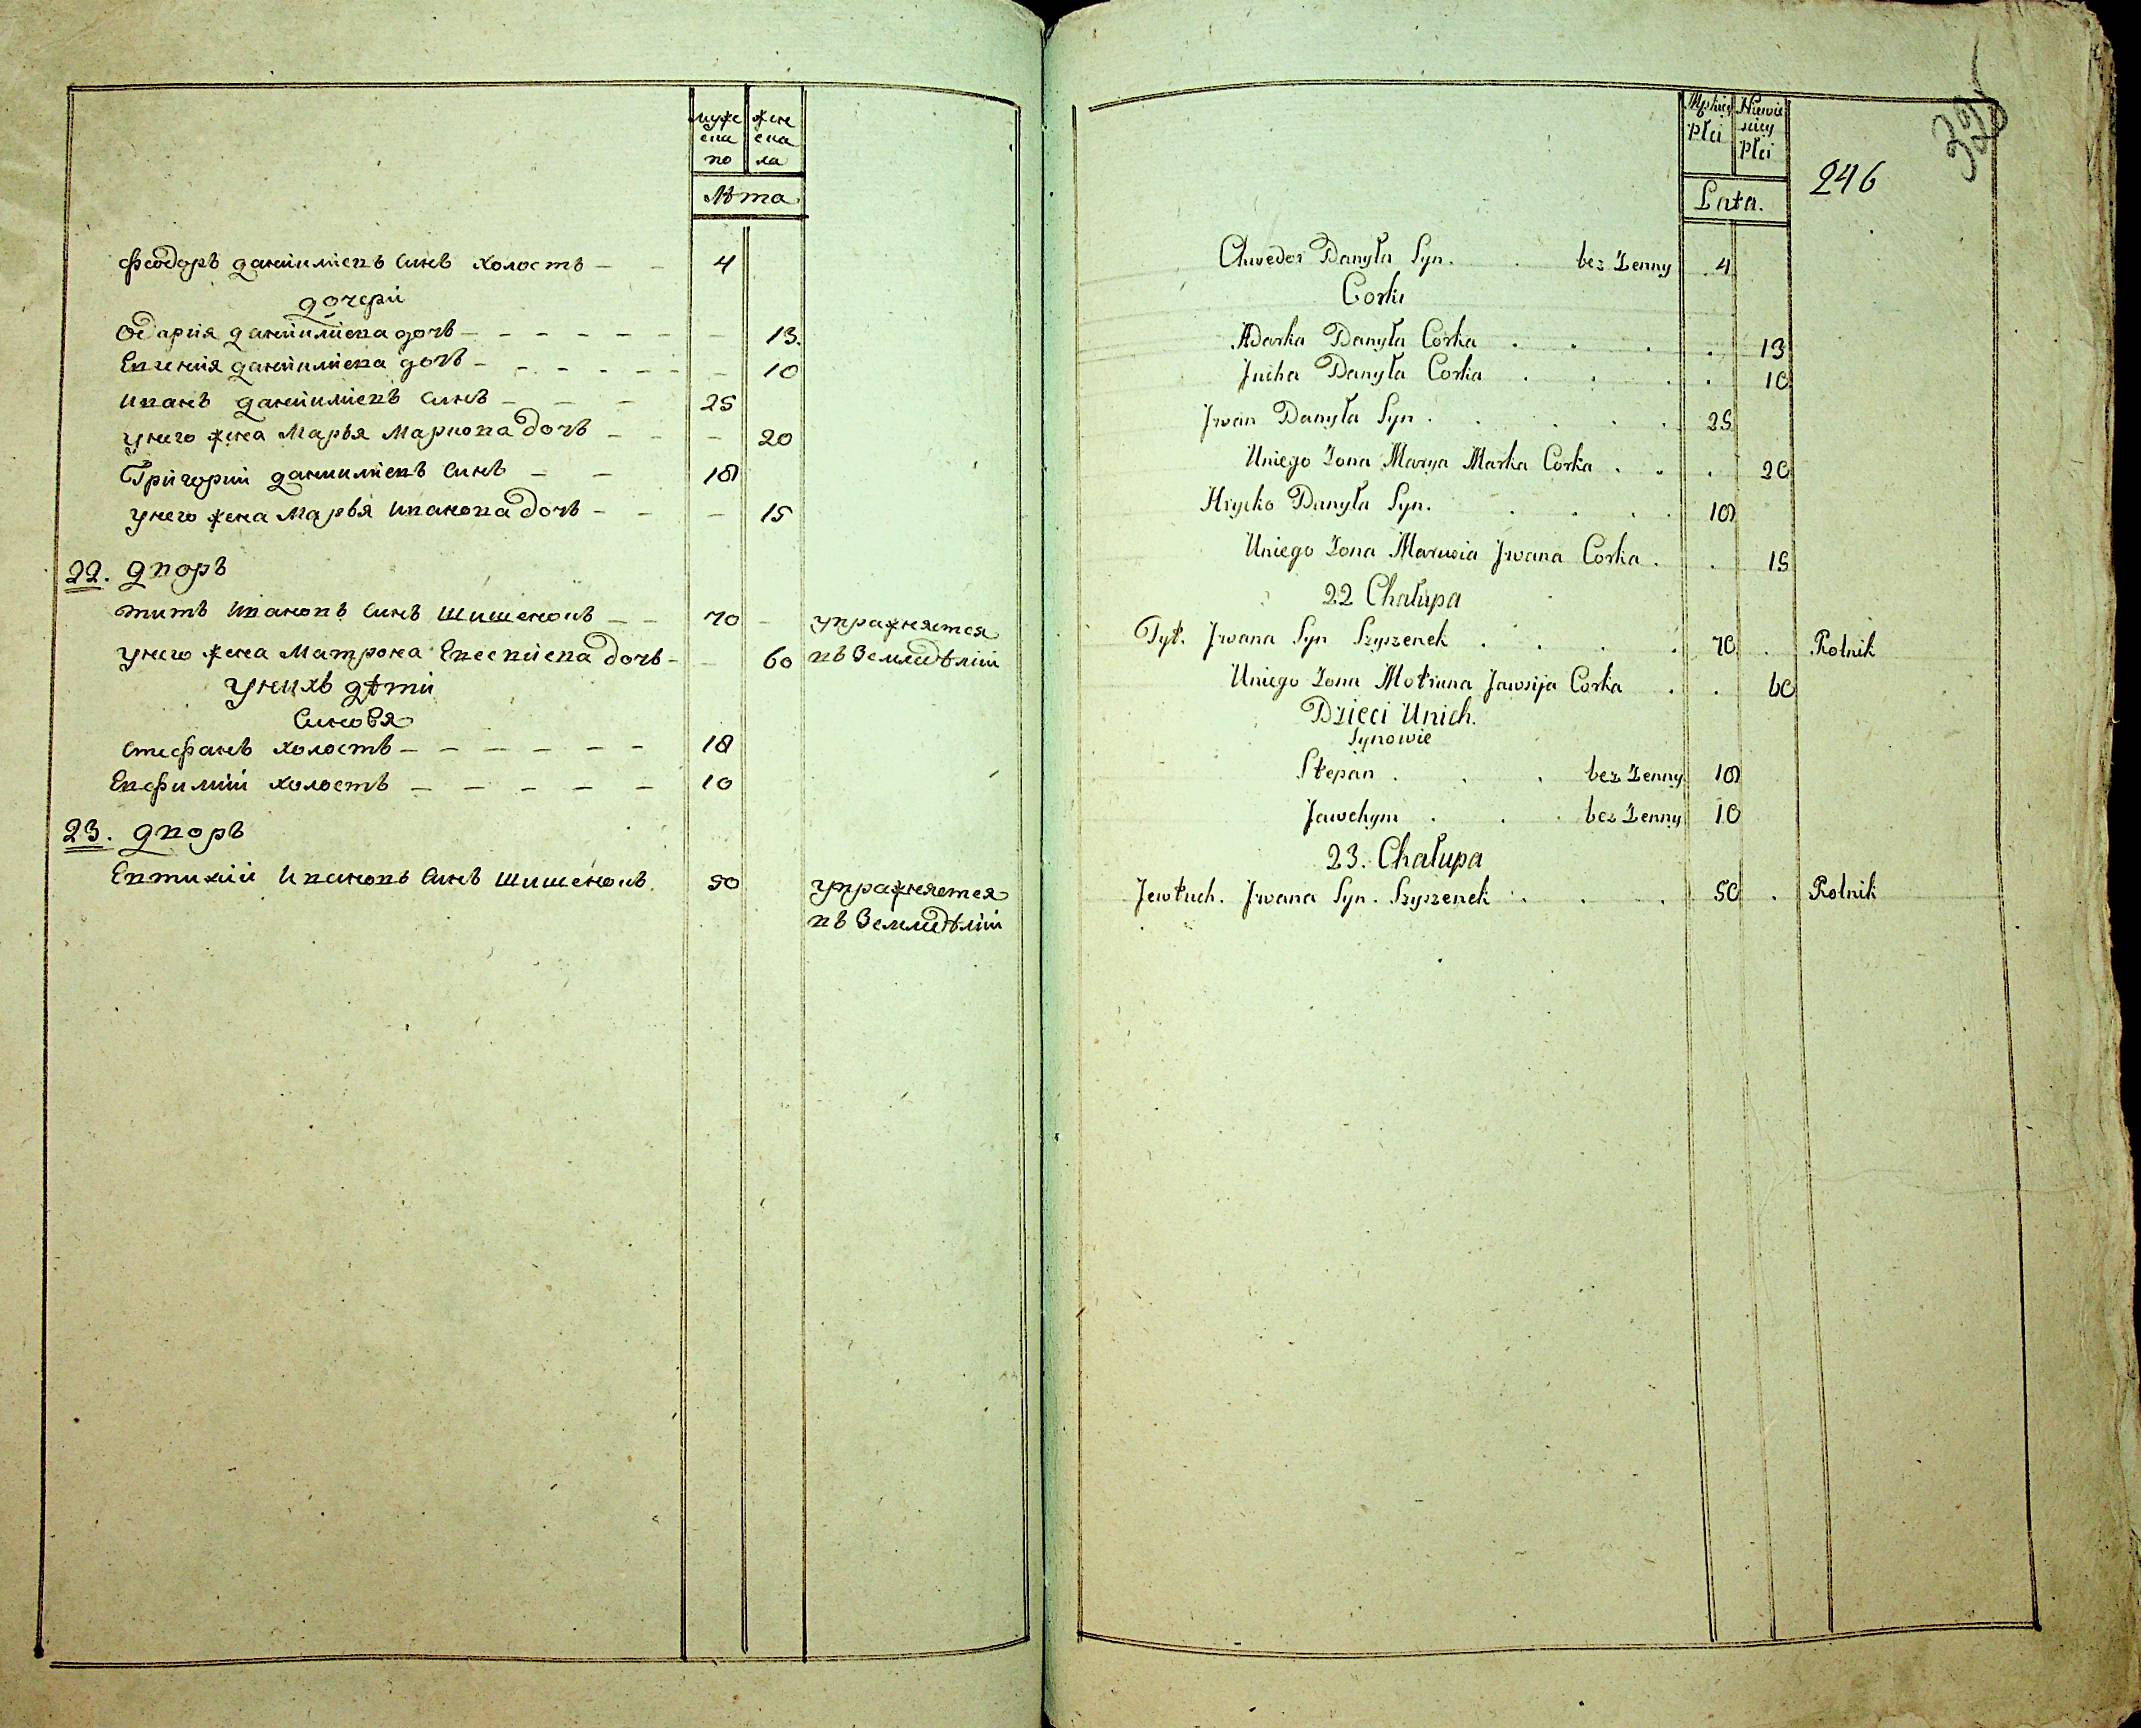 муже
ска
го
жен
ска
ла
Лѣта
Феодоръ данииліевъ синъ холостъ — — 4
дочери
Одария данииліева дочь — — — — — — — 13.
Евгения данииліева дочь — — — — — — — 10
Иванъ данииліевъ синъ — — — 25
унего жена Марья Маркова дочь — — — 20
Григорий данииліевъ синъ — — 18
унего жена Марья Иванова дочь — — — 15
22. дворъ
титъ Ивановъ синъ Шишенокъ — — 70 — упражняется
унего жена Матрона Евсевиева дочь — — 60 въ Земледѣлии
унихъ дѣти
синовя
Стефанъ холостъ — — — — — — 18
Евфимий холостъ — — — — — 10
23. дворъ
Евтихий Ивановъ синъ Шишенокъ. 50 упражняется
въ Земледѣлии
Męskiey
Płci
Niewie
sciey
Płci
Lata.
246
325
Chwedor Danyła Syn. . bez Zenny . 4
Corki
Adarka Danyła Corka . . . . 13
Jucha Danyła Corka . . . . 10
Jwan Danyła Syn . . . . . 25
Uniego Zona Marya Marka Corka . . . 20
Hrycko Danyła Syn. . . . . 18
Uniego Zona Marusia Jwana Corka . . 15
22 Chałupa
Tyt. Jwana Syn Szyszenek . . . . 70 . Rolnik
Uniego Zona Motruna Jawsija Corka . . 60
Dzieci Unich.
Synowie
Stepan . . . bez Zenny 18
Jawchym . . . bez Zenny 10
23. Chałupa
Jewtuch. Jwana Syn. Szyszenek . . . 50 . Rolnik